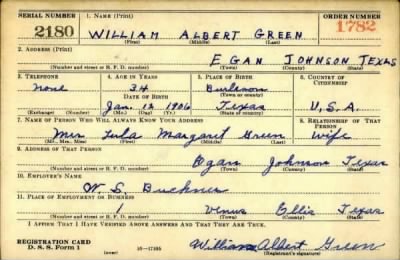 SERIAL NUMBER 1. NAME (Print) ORDER NUMBER
2180 WILLIAM ALBERT GREEN 1782
(First) (Middle) (Last)
2. ADDRESS (Print)
EGAN JOHNSON TEXAS
(Number and street or R. F. D. number) (Town) (County) (State)
3. TELEPHONE 4. AGE IN YEARS 5. PLACE OF BIRTH 6. COUNTRY OF CITIZENSHIP
None 34 Burleson
DATE OF BIRTH (Town or county)
Jan. 12 1906 Texas U.S.A
(Exchange) (Number) (Mo.) (Day) (Yr.) (State or country)
7. NAME OF PERSON WHO WILL ALWAYS KNOW YOUR ADDRESS 8. RELATIONSHIP OF THAT PERSON
Mrs Lula Margaret Green Wife
(Mr., Mrs., Miss) (First) (Middle) (Last)
9. ADDRESS OF THAT PERSON
Egan Johnson Texas
(Number and street or R. F. D. number) (Town) (County) (State)
10. EMPLOYER'S NAME
W. S. Buckner
11. PLACE OF EMPLOYMENT OR BUSINESS
1 Venus Ellis Texas
(Number and street or R. F. D. number) (Town) (County) (State)
I AFFIRM THAT I HAVE VERIFIED ABOVE ANSWERS AND THAT THEY ARE TRUE.
REGISTRATION CARD
D. S. S. Form 1 (over) William Albert Green
(Registrant's signature)